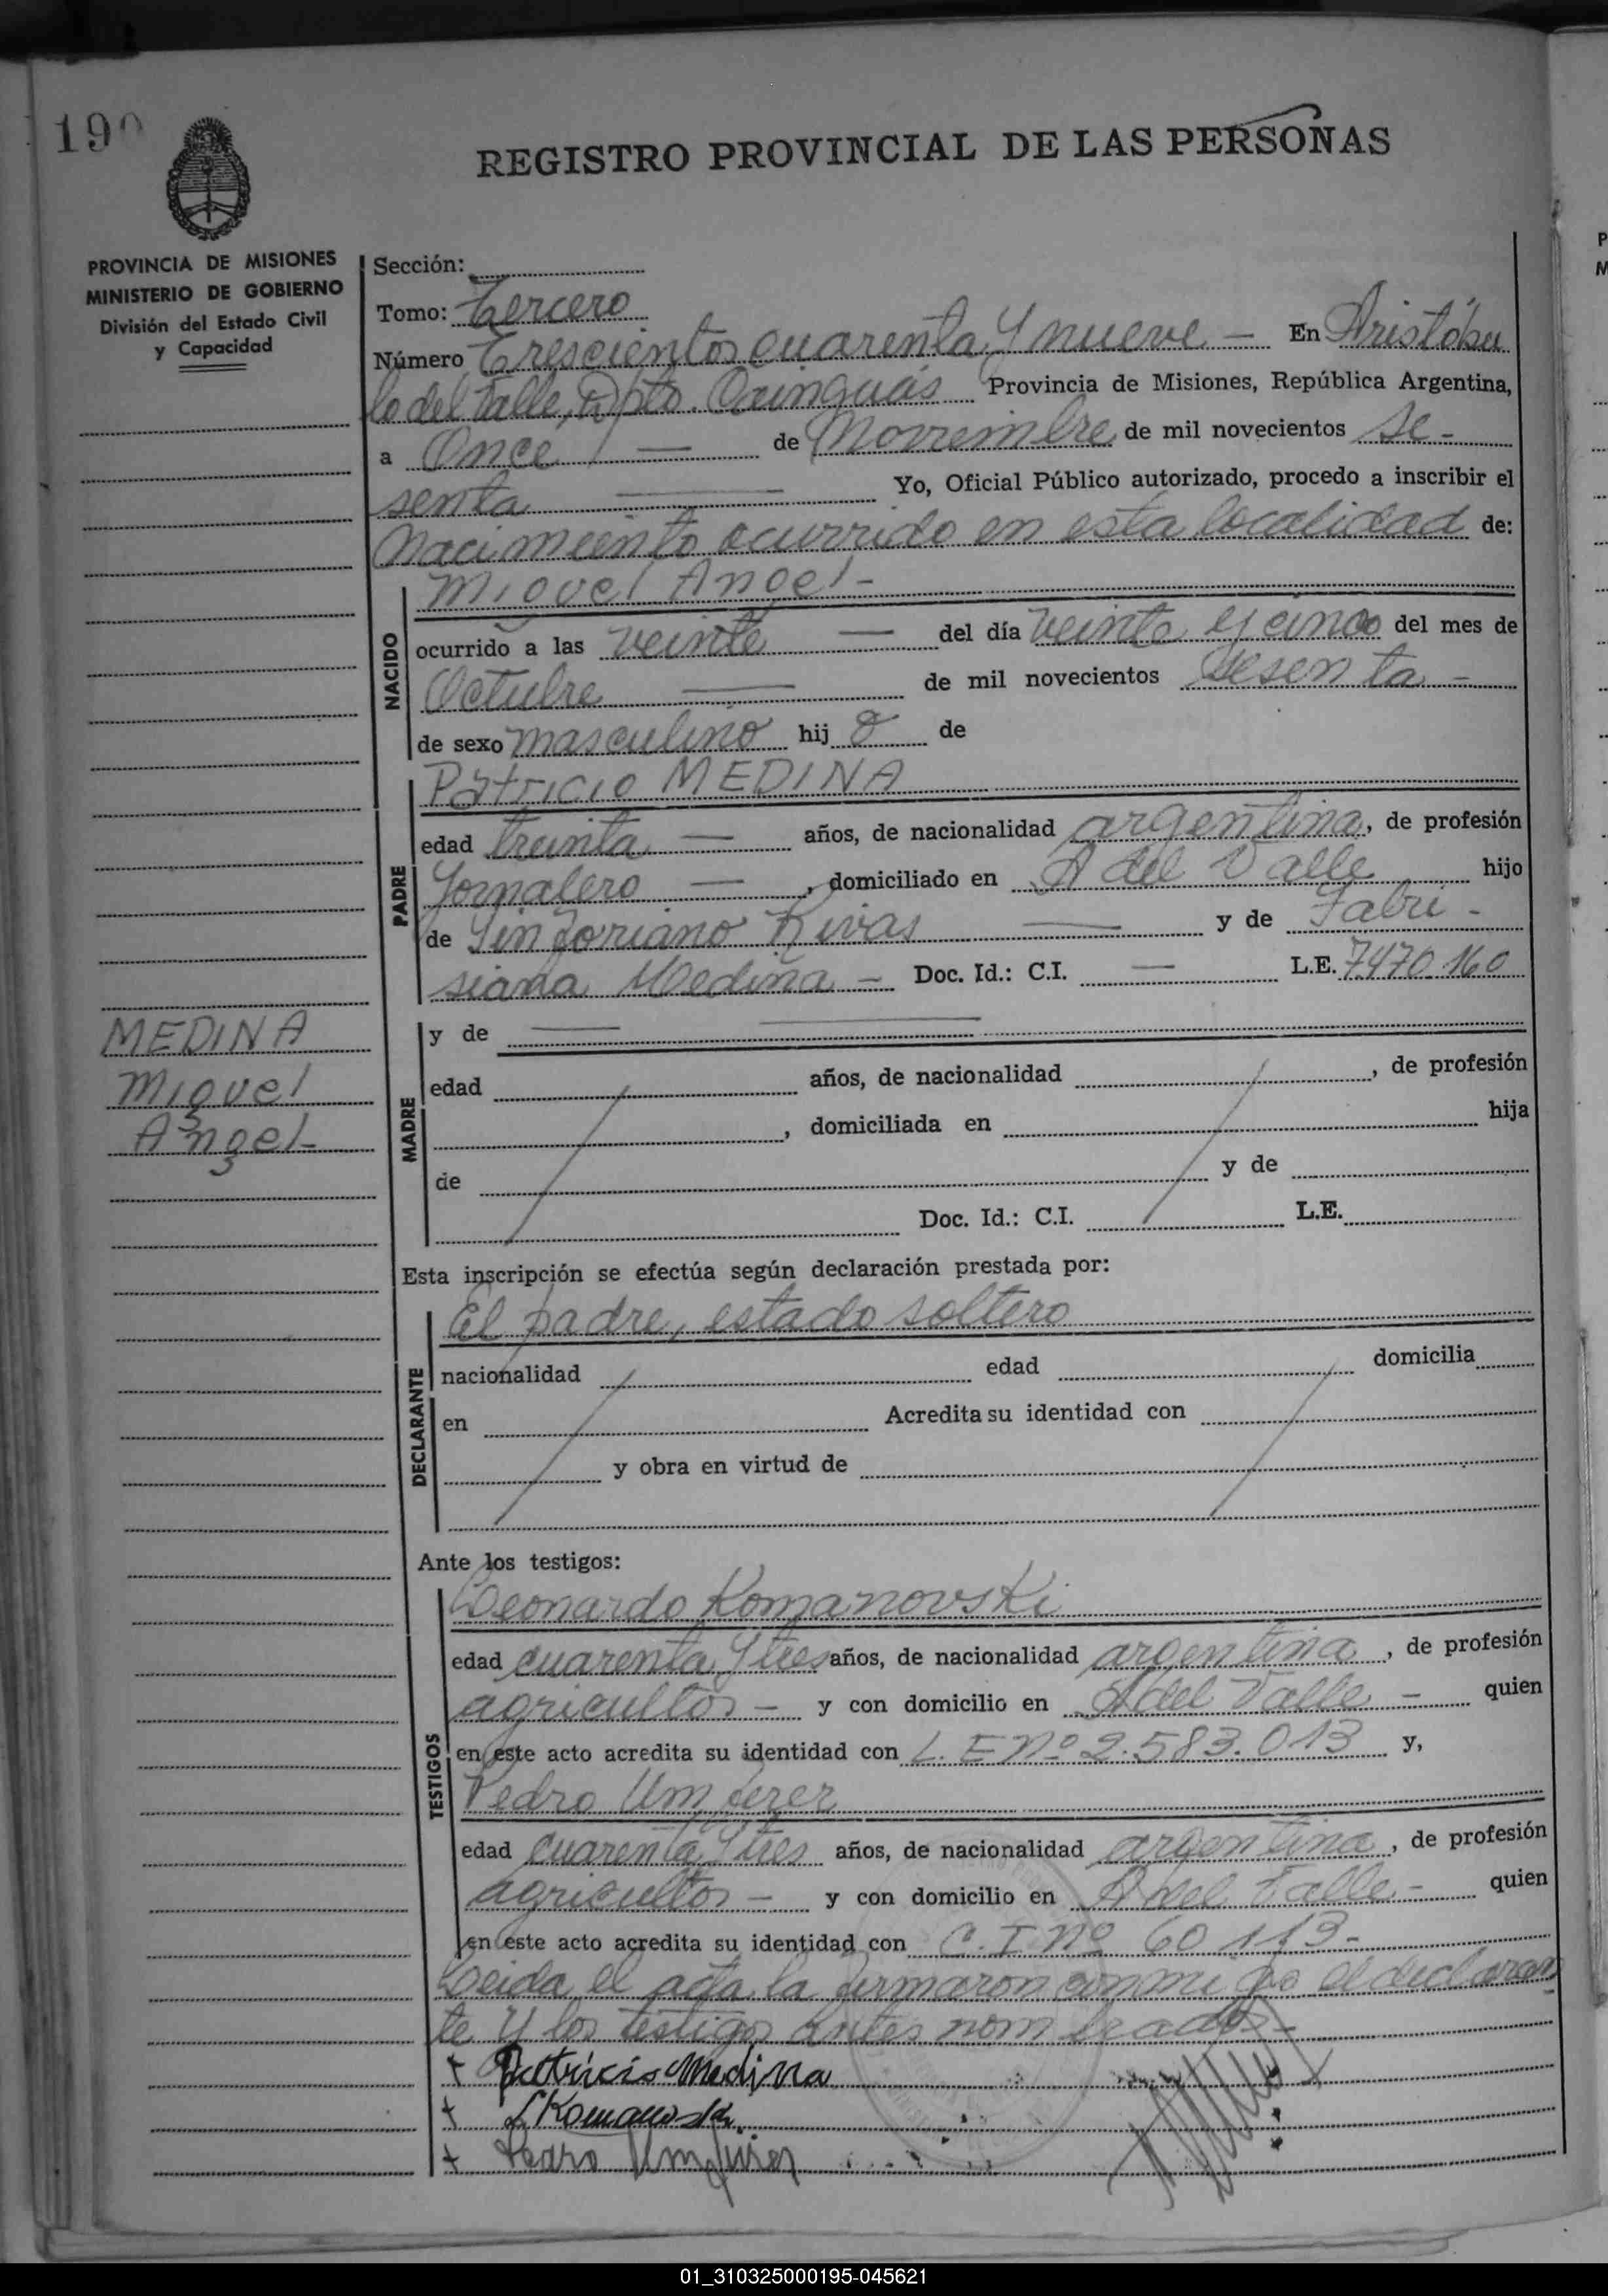 190
REGISTRO PROVINCIAL DE LAS PERSONAS
PROVINCIA DE MISIONES
MINISTERIO DE GOBIERNO
División del Estado Civil
y Capacidad
Sección:
Tomo: Tercero
Número Trescientos cuarenta y nueve — En Aristóbu
lo del Valle, Dpto. Cainguás Provincia de Misiones, República Argentina,
a Once — de Noviembre de mil novecientos se-
senta — Yo, Oficial Público autorizado, procedo a inscribir el
Nacimiento ocurrido en esta localidad de:
NACIDO
Miguel Angel-
ocurrido a las veinte — del día veinte y cinco del mes de
Octubre — de mil novecientos sesenta -
de sexo masculino hij o de
PADRE
Patricio MEDINA
edad treinta — años, de nacionalidad argentina, de profesión
Jornalero —, domiciliado en A del Valle hijo
de Sinforiano Rivas — y de Fabri-
siana Medina - Doc. Id.: C.I. — L.E. 7470160
MEDINA
Miguel
Angel-
MADRE
y de — —
edad años, de nacionalidad , de profesión
, domiciliada en hija
de y de
Doc. Id.: C.I. L.E.
Esta inscripción se efectúa según declaración prestada por:
DECLARANTE
El padre, estado soltero
nacionalidad edad domicilia
en Acredita su identidad con
y obra en virtud de
Ante los testigos:
TESTIGOS
Leonardo Komanovski
edad cuarenta y tres años, de nacionalidad argentina, de profesión
agricultor - y con domicilio en A del Valle - quien
en este acto acredita su identidad con L. E Nº 2.583.013 y,
Pedro Umfezer
edad cuarenta y tres años, de nacionalidad argentina, de profesión
agricultor - y con domicilio en A del Valle - quien
en este acto acredita su identidad con C. I Nº 60113-
Leida el acta la firmaron conmigo el declaran
te y los testigos antes nombrados-
+ Patricio Medina
+ L Komanoski
+ Pedro
01_310325000195-045621